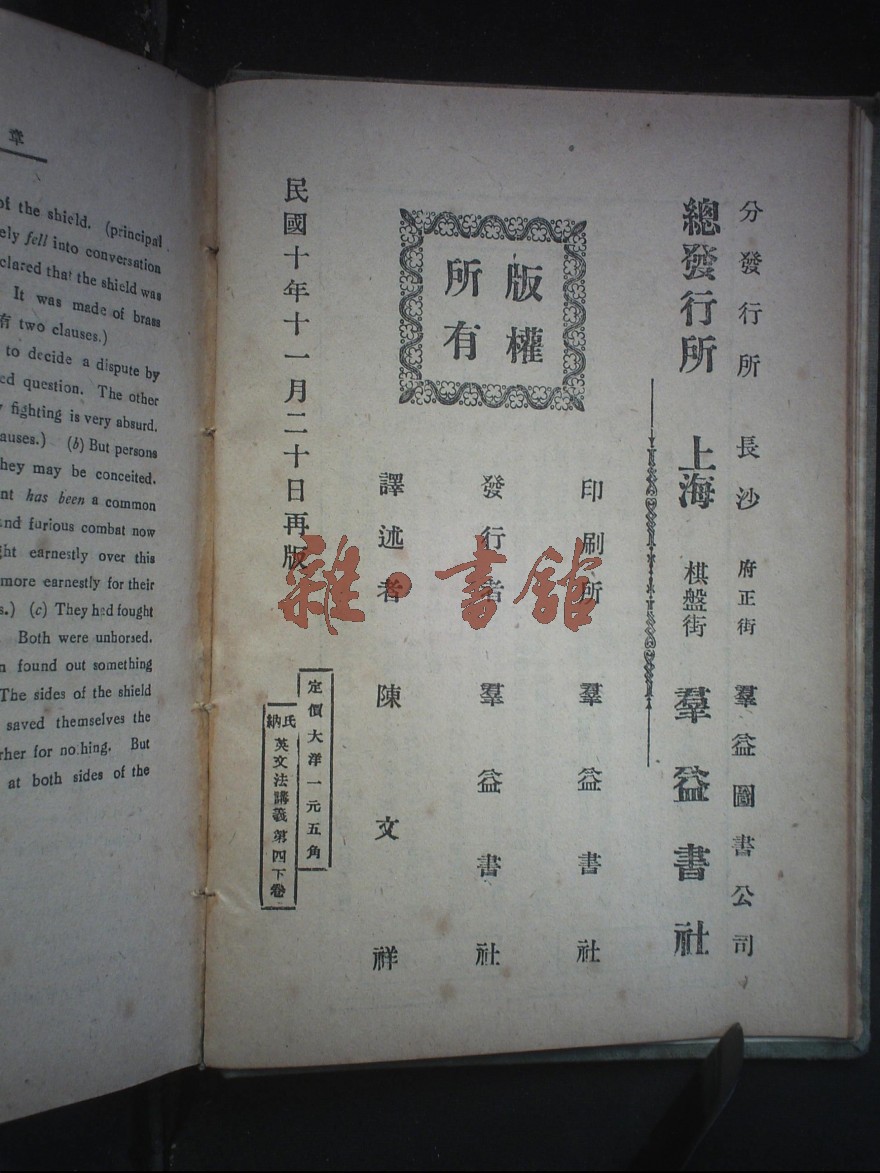 章
of the shield. (principal
ely fell into conversation
clared that the shield was
It was made of brass
有 two clauses.)
to decide a dispute by
ed question. The other
fighting is very absurd.
auses.) (b) But persons
hey may be conceited.
nt has been a common
and furious combat now
ht earnestly over this
more earnestly for their
s.) (c) They had fought
Both were unhorsed.
n found out something
The sides of the shield
saved themselves the
rher for no.hing. But
at both sides of the
分發行所 長沙 府正街 羣益圖書公司
總發行所 上海 棋盤街 羣益書社
版權
所有
印刷所 羣益書社
發行者 羣益書社
譯述者 陳文祥
民國十年十一月二十日再版
定價大洋一元五角
納氏英文法講義第四下卷
雜·書館